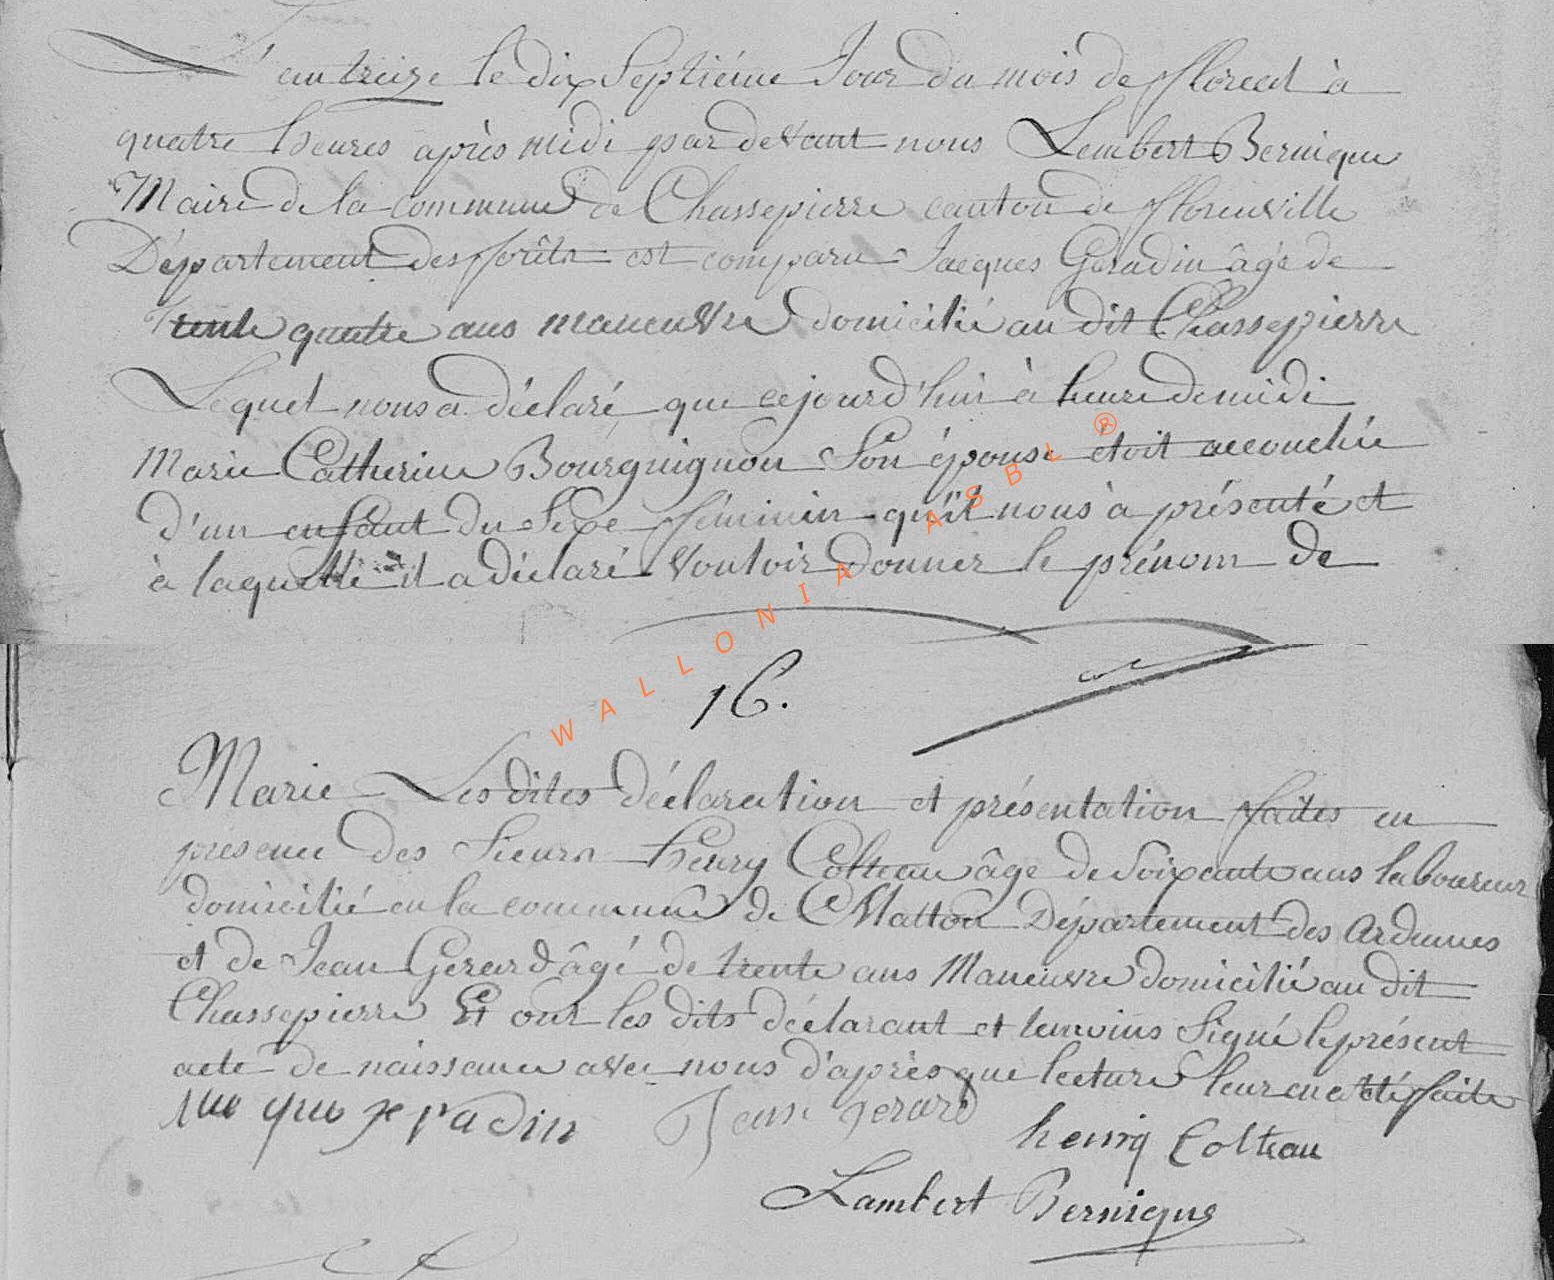 L'an treize le dix Septiéme Jour du mois de floreal à
quatre heures après midi par devant nous Lambert Bernique
Maire de la commune de Chassepierre canton de florenville
Département des forêts est comparu Jacques Géradin âgé de
trente quatre ans maneuvre domicilié au dit Chassepierre
Lequel nous a déclaré que cejourd'hui à heure de midi
Marie Catherine Bourguignon Son épouse étoit accouchée
d'un enfant du Sexe féminin qu'il nous à présenté et
à laquelle il a déclaré vouloir donner le prénom de
WALLONIA ASBL ®
16.
Marie Les dites déclaration et présentation faites en
présence des Sieurs henry Colteau âge de Soixante ans laboureur
domicilié en la commune de Matton Département des Ardennes
et de Jean Gerard âgé de trente ans Maneuvre domicilié au dit
Chassepierre Et ont les dits déclarant et temoins Signé le présent
acte de naissance avec nous d'après que lecture leur en a été faite
geradin Jean gerard henriq Colteau
Lambert Bernique